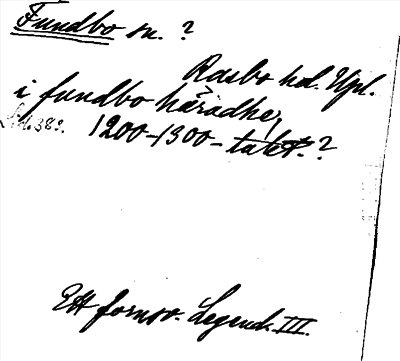 Fundbo sn. ?
Rasbo hd. Upl.
i fundbo häradhe,
s. 389. 1200-1300-talet.?
Ett fornsv. Legend. III.